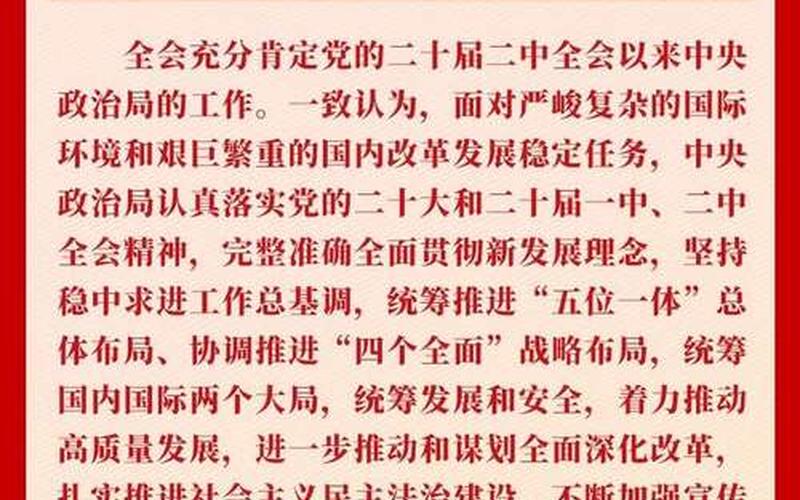 全会充分肯定党的二十届二中全会以来中央
政治局的工作。一致认为，面对严峻复杂的国际
环境和艰巨繁重的国内改革发展稳定任务，中央
政治局认真落实党的二十大和二十届一中、二中
全会精神，完整准确全面贯彻新发展理念，坚持
稳中求进工作总基调，统筹推进“五位一体”总
体布局、协调推进“四个全面”战略布局，统筹
国内国际两个大局，统筹发展和安全，着力推动
高质量发展，进一步推动和谋划全面深化改革，
扎实推进社会主义民主法治建设，不断加强宣传